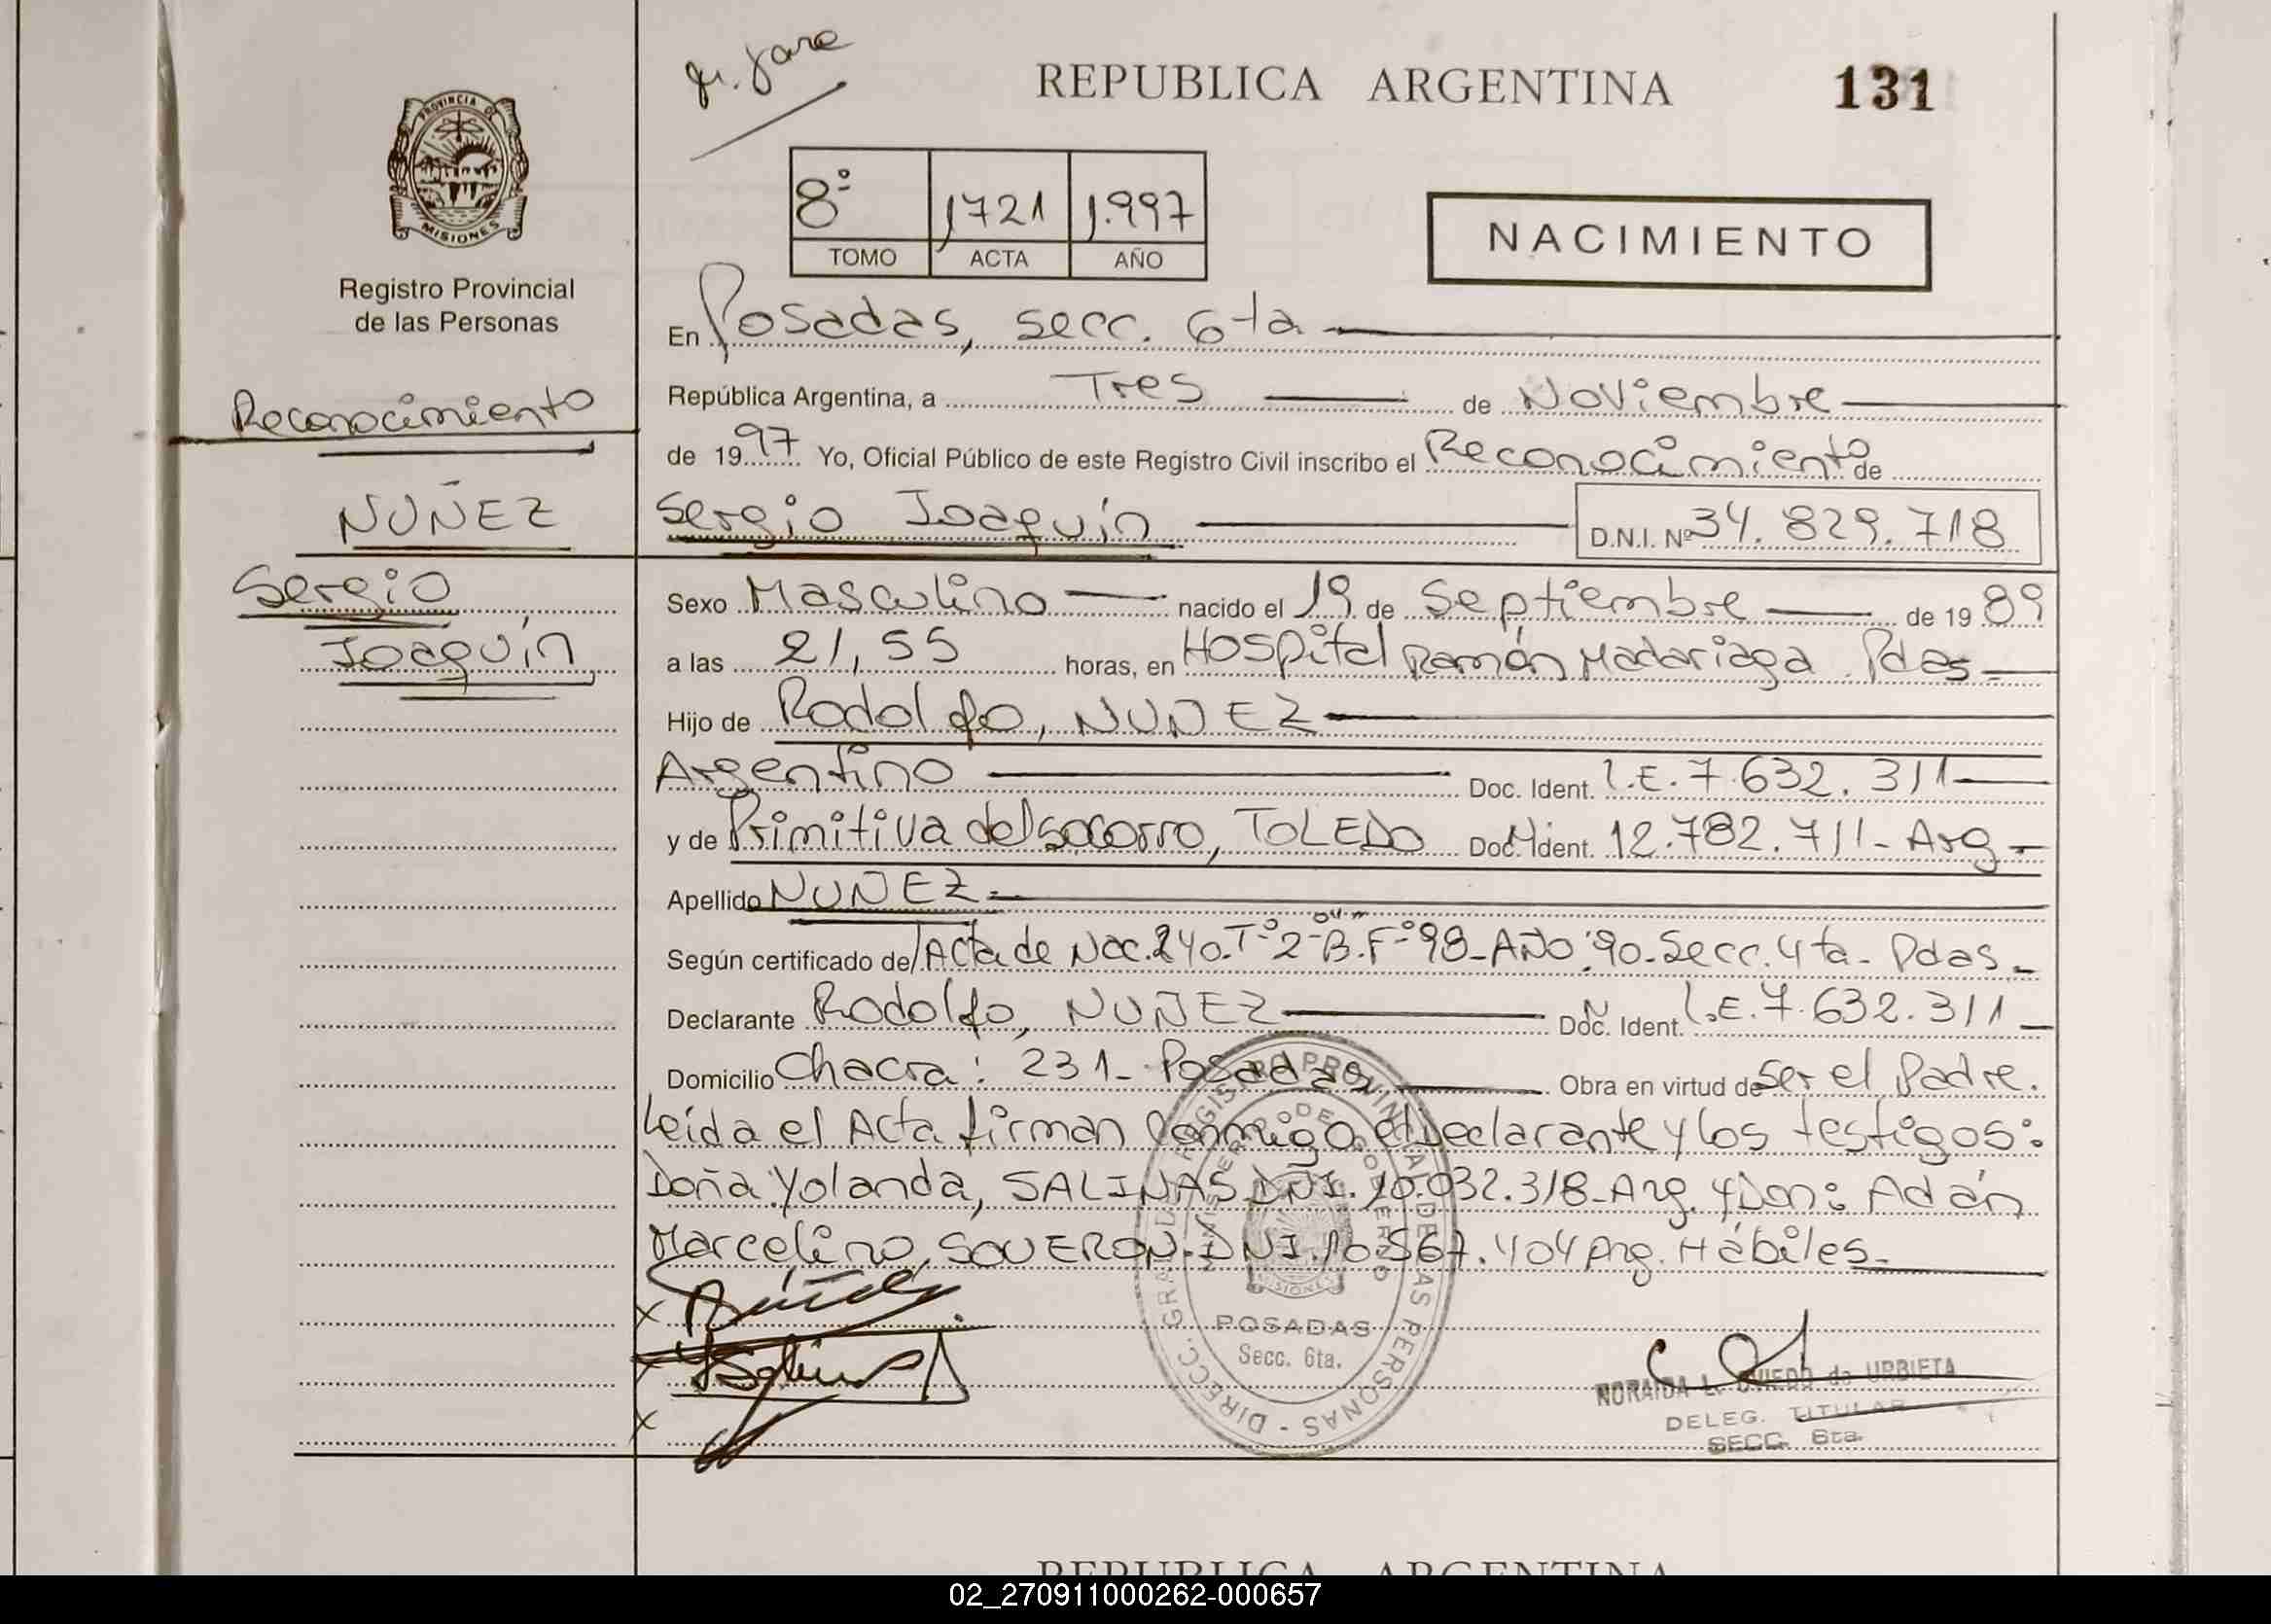 REPUBLICA ARGENTINA
131
PROVINCIA DE
MISIONES
Registro Provincial
de las Personas
8º 1721 1.997
TOMO ACTA AÑO
NACIMIENTO
En Posadas, secc. 6ta
República Argentina, a Tres de Noviembre
Reconocimiento
de 1997 Yo, Oficial Público de este Registro Civil inscribo el Reconocimiento de
NUÑEZ
Sergio Joaquín D.N.I. Nº 34.829.718
Sergio
Joaquín
Sexo Masculino nacido el 19 de Septiembre de 1989
a las 21,55 horas, en Hospital Ramón Madariaga Pdas
Hijo de Rodolfo, NUÑEZ
Argentino Doc. Ident. L.E. 7.632.311
y de Primitiva del socorro, TOLEDO Doc. Ident. 12.782.711- Arg-
Apellido NUÑEZ
Según certificado de Acta de Nac. 240. Tº 2-B. Fº 98- Año '90- Secc. 4ta- Pdas-
Declarante Rodolfo, NUÑEZ Doc. Ident. L.E. 7.632.311
Domicilio Chacra: 231- Posadas Obra en virtud de Ser el Padre.
Leída el Acta firman Conmigo el Declarante y los testigos:
Doña Yolanda, SALINAS DNI. 10.032.318- Arg. y Don: Adán
Marcelino, SOVERON- DNI. 10.567.404 Arg. Hábiles-
X
X
X
DIRECC. GRAL. DE REGISTRO PROVINCIAL DE LAS PERSONAS -
MINISTERIO DE GOBIERNO
MISIONES
POSADAS
Secc. 6ta.
NORAIDA L. OVIEDO de URBIETA
DELEG. TITULAR
SECC. 6ta.
REPUBLICA ARGENTINA
02_270911000262-000657